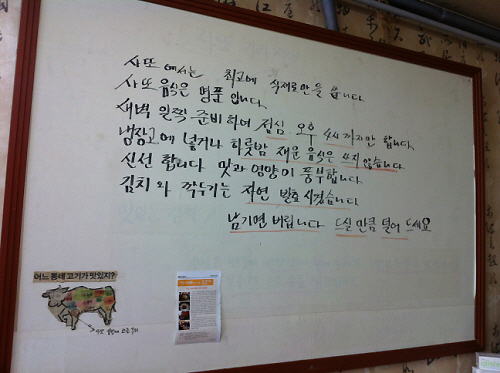 사또 에서는 최고에 식재료만을 씁니다
사또 음식은 명품 입니다.
새벽 일찍 준비하여 점심 오후 4시 까지만 합니다.
냉장고에 넣거나 하룻밤 재운 음식은 쓰지 않습니다
신선 합니다 맛과 영양이 풍부합니다.
김치 와 깍두기는 자연 발효 시켰습니다
남기면 버립니다 드실 만큼 덜어 드세요
어느 동네 고기가 맛있지?